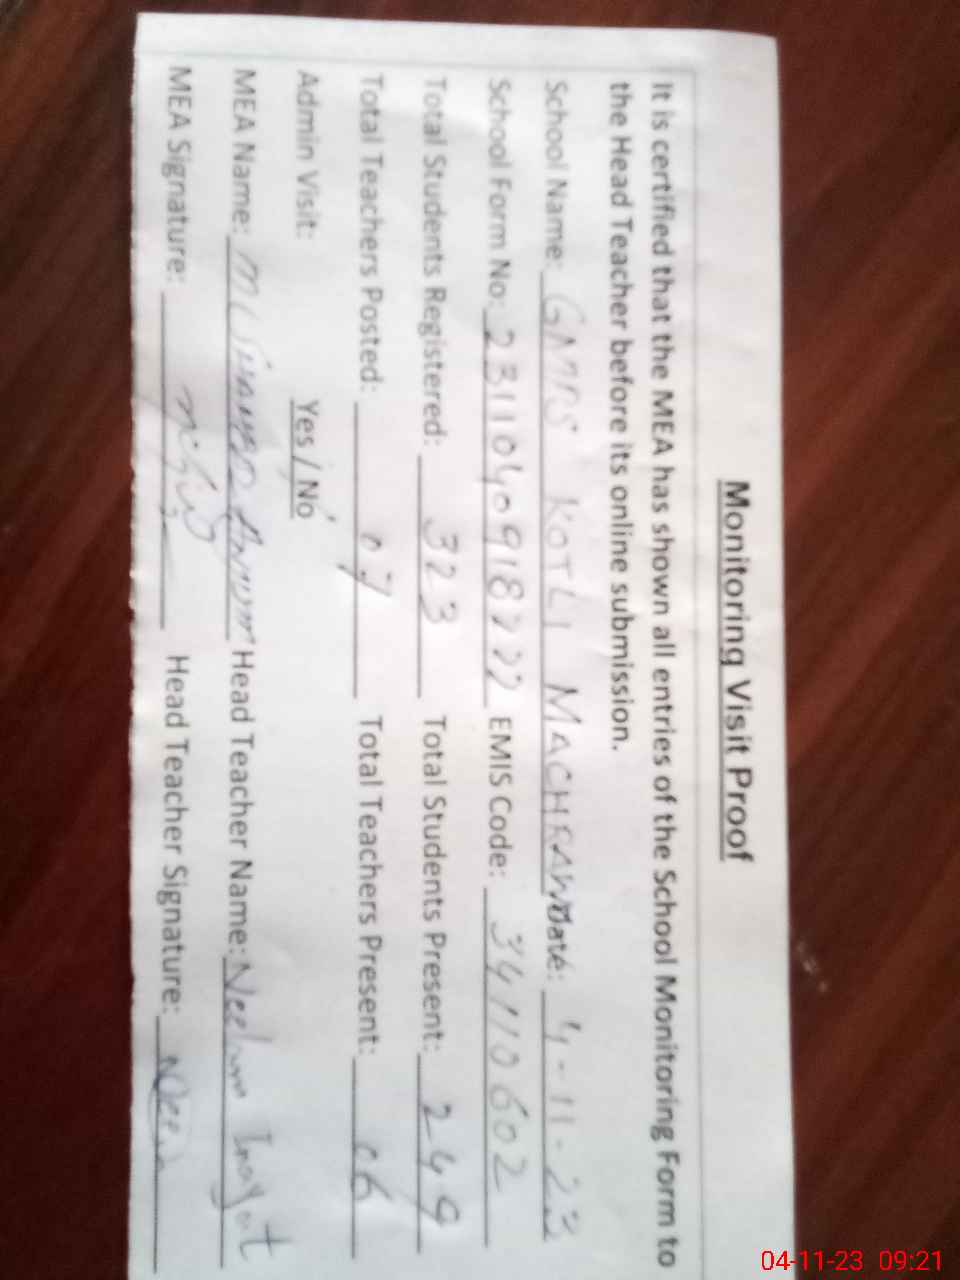 Monitoring Visit Proof
It is certified that the MEA has shown all entries of the School Monitoring Form to
the Head Teacher before its online submission.
School Name: GMPS KOTLI MACHRAN Date: 4-11-23
School Form No: EMIS Code: 34110602
Total Students Registered: 323 Total Students Present: 249
Total Teachers Posted: 07 Total Teachers Present: 06
Admin Visit: Yes / No
MEA Name: Anjum Head Teacher Name: Neelam Inayat
MEA Signature: Head Teacher Signature:
04-11-23 09:21